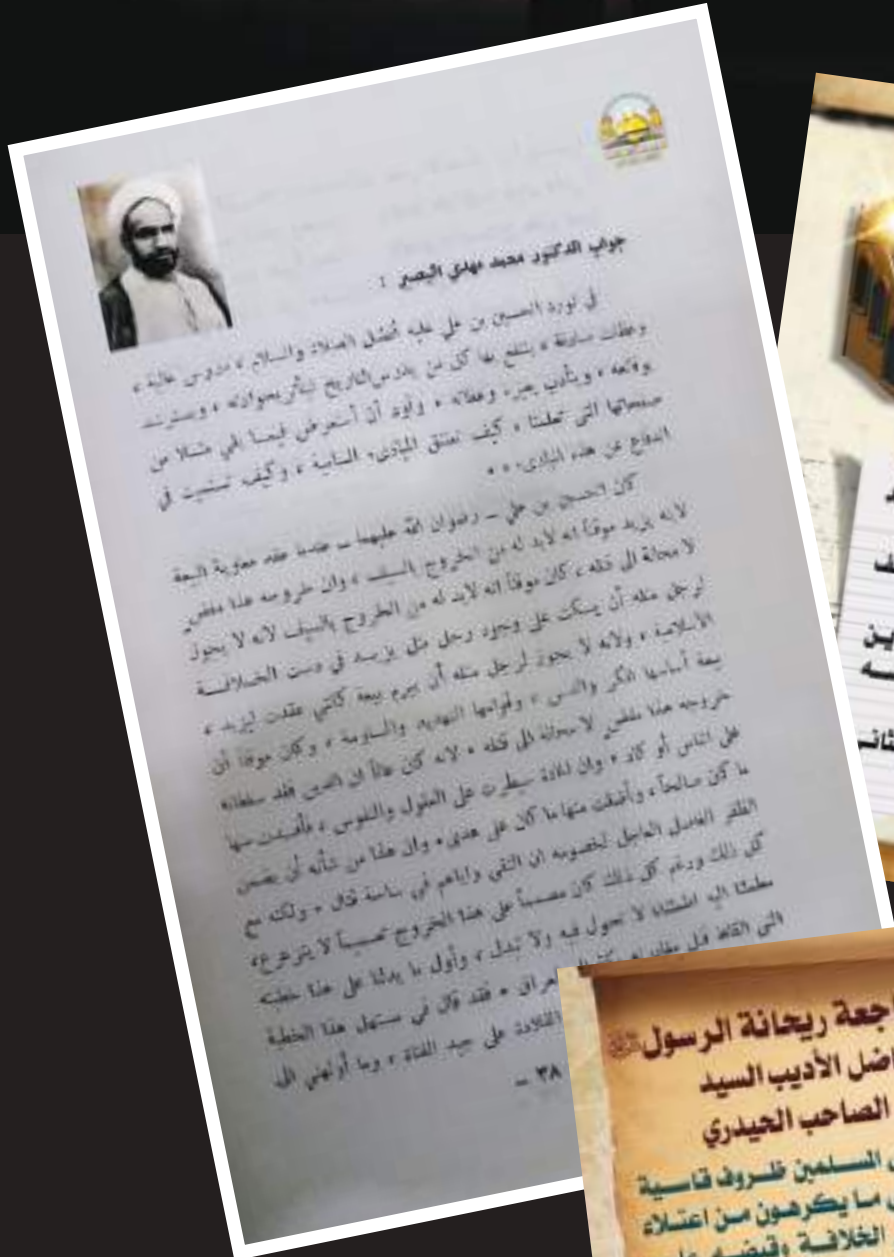 جواب الدكتور محمد مهدي البصير :
في ثورة الحسين بن علي عليه أفضل الصلاة والسلام ، دروس عالية ،
وعظات ينتفع بها كل من يدرس التاريخ ويسترشد
بوقائعه ، ويتأدب بعبره وعظاته ، وأود أن أستعرض فيما يلي مثلا من
صفحاتها التي تعلمنا ، كيف نعتنق المبادىء السامية ، وكيف نستميت في
الدفاع عن هذه المبادىء ٠ ٠
كان الحسين بن علي ــ رضوان الله عليهما ــ عندما عقد معاوية البيعة
لابنه يزيد موقناً انه لابد له من الخروج بالسيف ، وان خروجه هذا مفض
لا محالة الى قتله ، كان موقناً انه لابد له من الخروج بالسيف لأنه لا يجوز
لرجل مثله أن يسكت على وجود رجل مثل يزيد في دست الخلافة
الاسلامية ، ولأنه لا يجوز لرجل مثله أن يبرم بيعة كالتي عقدت ليزيد ،
بيعة أساسها المكر والدس ، وقوامها التهديد والمساومة ، وكان موقناً أن
خروجه هذا مفض لا محالة الى قتله ، لانه كان عالماً ان الدين فقد سلطانه
على الناس أو كاد ، وان المادة سيطرت على العقول والنفوس ، فأفسدت منها
ما كان صالحاً ، وأضلت منها ما كان على هدى ، وان هذا من شأنه أن يضمن
الظفر العاجل لخصومه ان التقى واياهم في ساحة قتال ، ولكنه مع
كل ذلك ورغم كل ذلك كان مصمماً على هذا الخروج تصميماً لا يتزعزع ،
مطمئنا اليه اطمئنانا لا تحول فيه ولا تبدل ، وأول ما يدلنا على هذا خطبته
التي القاها قبل العراق ، فقد قال في مستهل هذا الخطبة
القلادة على جيد الفتاة ، وما أولهني الى
ــ ٣٨
ثاني
جعة ريحانة الرسول
اضل الأديب السيد
الصاحب الحيدري
المسلمين ظروف قاسية
ما يكرهون من اعتلاء
الخلافة